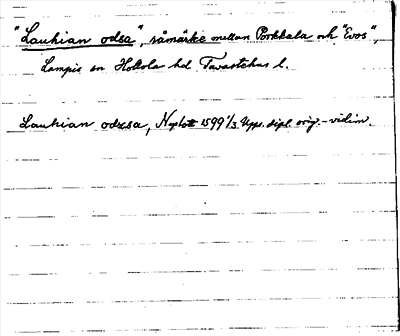 "Lauhian odsa", råmärke mellan Porkkala och "Evos",
Lampis sn Hollola hd Tavastehus l.
Lauhian odxsa, 1599 1/3 Upps. dipl. orig.-vidim.